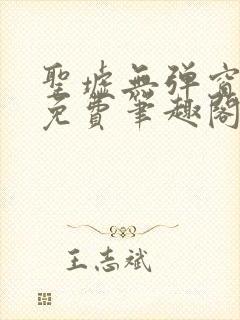 聖墟無彈窗
免費筆趣閣
王志斌